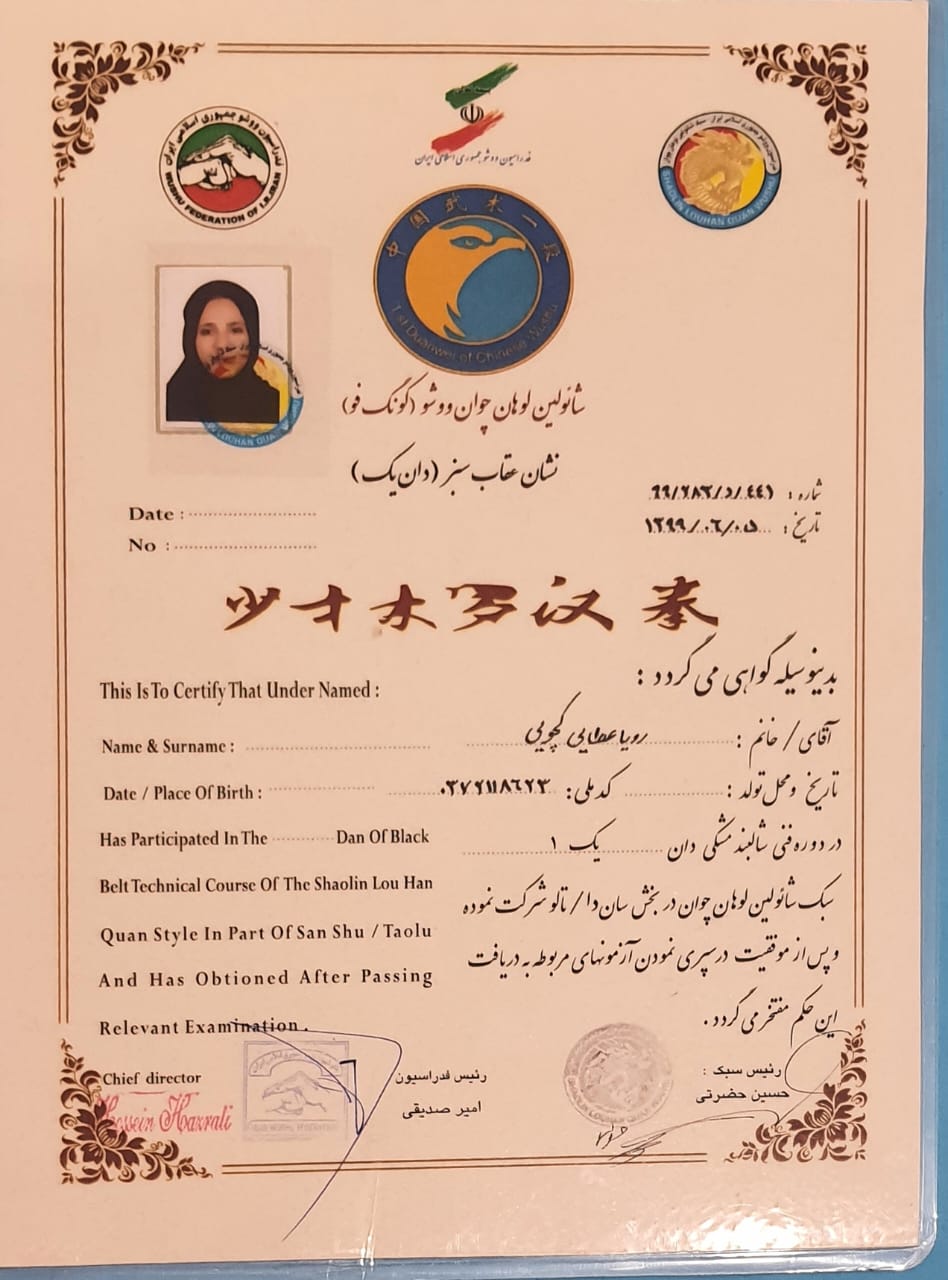 فدراسیون ووشو جمهوری اسلامی ایران
WUSHU FEDERATION OF I.R.IRAN
فدراسیون ووشو جمهوری اسلامی ایران
SHAOLIN LOUHAN QUAN WUSHU
中国武术一段
1 st Duanwei of Chinese Wushu
شائولین لوهان چوان ووشو (کونگ فو)
نشان عقاب سبز (دان یک)
شماره : ۹۹/۶۸۲/د/۴۴۱
تاریخ : ۱۳۹۹/۰۶/۰۵
Date :
No :
少林罗汉拳
بدینوسیله گواهی می گردد :
This Is To Certify That Under Named :
آقای / خانم : رویا عطایی کچویی
Name & Surname :
تاریخ و محل تولد : کد ملی :
Date / Place Of Birth :
در دوره فنی شالبند مشکی دان یک ۱
Has Participated In The Dan Of Black
سبک شائولین لوهان چوان در بخش سان دا / تالو شرکت نموده
Belt Technical Course Of The Shaolin Lou Han
Quan Style In Part Of San Shu / Taolu
و پس از موفقیت در سپری نمودن آزمونهای مربوطه به دریافت
And Has Obtioned After Passing
این حکم مفتخر می گردد .
Relevant Examination .
رئیس سبک :
حسین حضرتی
رئیس فدراسیون
امیر صدیقی
Chief director
Hossein Hazrati